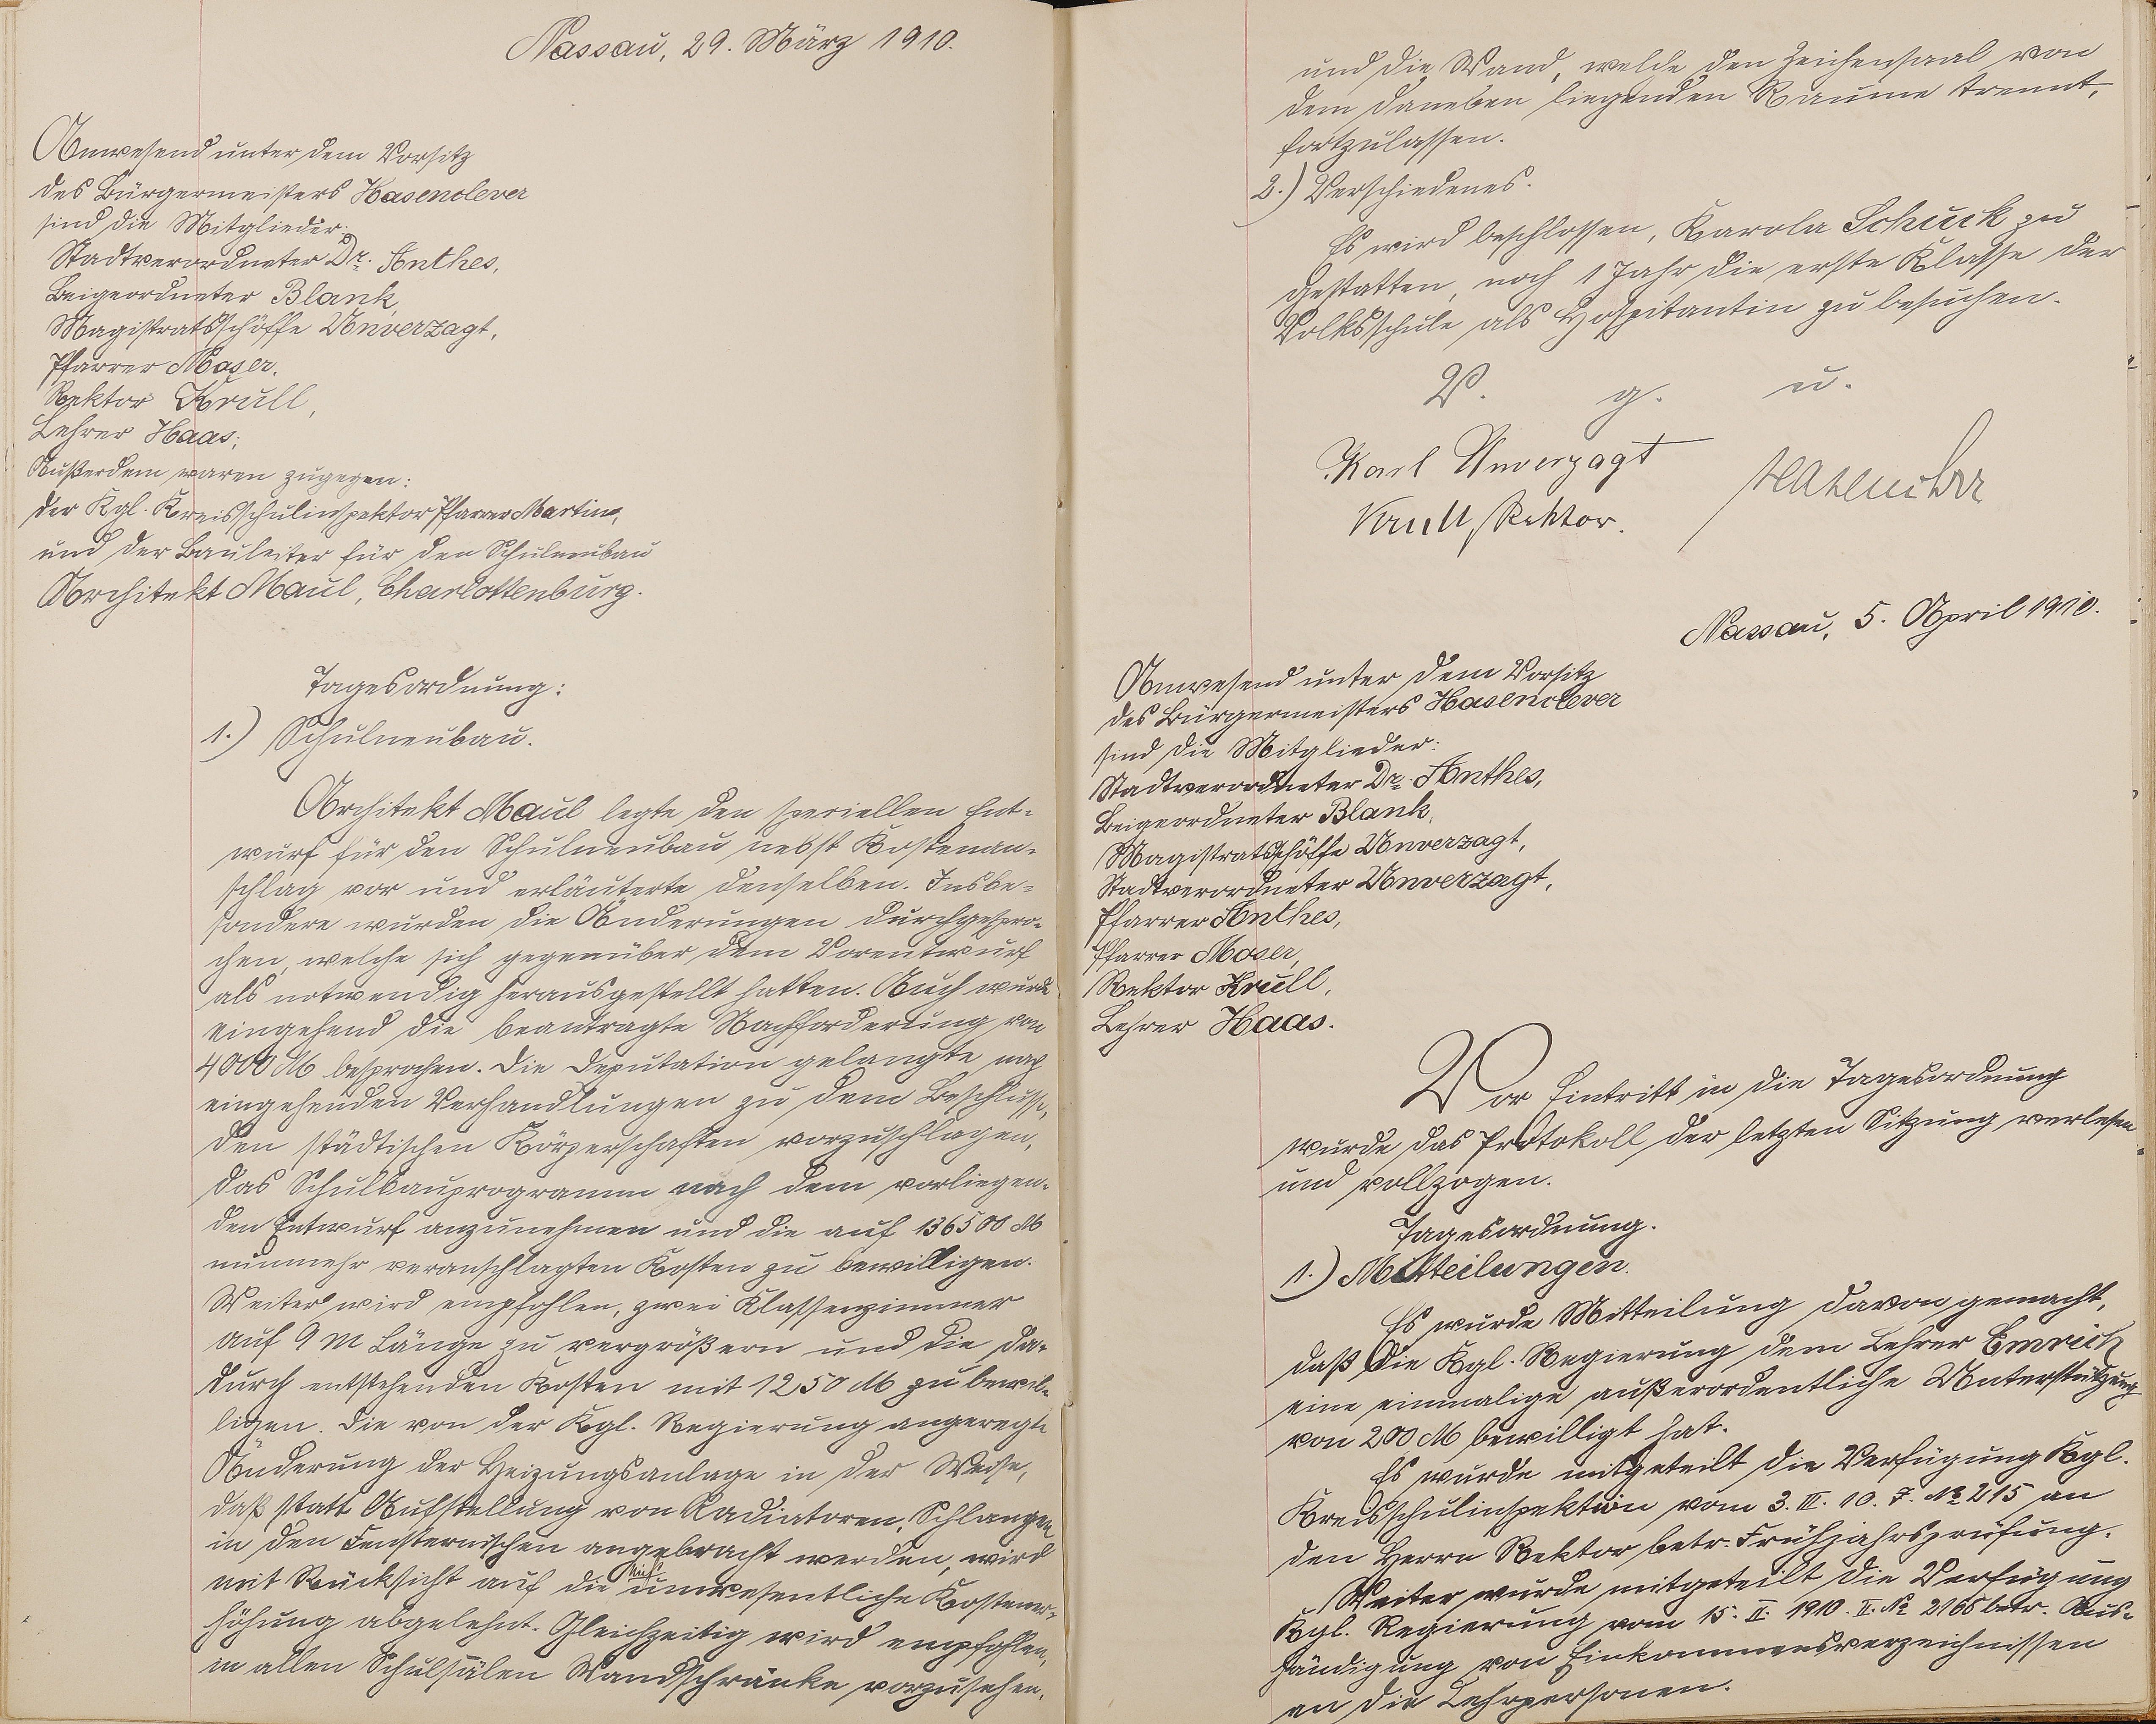 Nassau, 29. März 1910.
Anwesend unter dem Vorsitz
des Bürgermeisters Hasenclever
sind die Mitglieder:
Stadtverordneter Dr. Anthes,
Beigeordneter Blank,
Magistratsschöffe Unverzagt,
Pfarrer Moser,
Rektor Krull,
Lehrer Haas;
Außerdem waren zugegen:
der Kgl. Kreisschulinspektor Pfarrer Martin,
und der Bauleiter für den Schulneubau
Architekt Maul, Charlottenburg.
Tagesordnung:
1.) Schulneubau.
Architekt Maul legte den speziellen Ent-
wurf für den Schulneubau nebst Kostenan-
schlag vor und erläuterte denselben. Insbe-
sondere wurden die Änderungen durchgespro-
chen, welche sich gegenüber dem Vorentwurf
als notwendig herausgestellt hatten. Auch wurde
eingehend die beantragte Nachforderung von
4000 M besprochen. Die Deputation gelangte nach
eingehenden Verhandlungen zu dem Beschlusse,
den städtischen Körperschaften vorzuschlagen,
das Schulbauprogramm nach dem vorliegen-
den Entwurf anzunehmen und die auf 136500 M
nunmehr veranschlagten Kosten zu bewilligen.
Weiter wird empfohlen, zwei Klassenzimmer
auf 9 m Länge zu vergrößern und die da-
durch entstehenden Kosten mit 1250 M zu bewil-
ligen. Die von der Kgl. Regierung angeregte
Änderung der Heizungsanlage in der Weise,
daß statt Aufstellung von Radiatoren, Schlangen
in den Fensternischen angebracht werden, wird
mit Rücksicht auf die nicht unwesentliche Kostener-
höhung abgelehnt. Gleichzeitig wird empfohlen,
in allen Schulsälen Wandschränke vorzusehen,
und die Wand, welche den Zeichensaal von
dem daneben liegenden Raume trennt,
fortzulassen.
2.) Verschiedenes.
Es wird beschlossen, Karola Schuck zu
gestatten, noch 1 Jahr die erste Klasse der
Volksschule als Hospitantin zu besuchen.
V. g. u.
Karl Unverzagt
Hasenclever
Krull, Rektor.
Nassau, 5. April 1910.
Anwesend unter dem Vorsitz
des Bürgermeisters Hasenclever
sind die Mitglieder:
Stadtverordneter Dr. Anthes,
Beigeordneter Blank,
Magistratsschöffe Unverzagt,
Stadtverordneter Unverzagt,
Pfarrer Anthes,
Pfarrer Moser,
Rektor Krull,
Lehrer Haas.
Vor Eintritt in die Tagesordnung
wurde das Protokoll der letzten Sitzung verlesen
und vollzogen.
Tagesordnung.
1.) Mitteilungen.
Es wurde Mitteilung davon gemacht,
daß die Kgl. Regierung dem Lehrer Emrich
eine einmalige außerordentliche Unterstützung
von 200 M bewilligt hat.
Es wurde mitgeteilt die Verfügung Kgl.
Kreisschulinspektion vom 3. III. 10. J. № 215 an
den Herrn Rektor betr. Frühjahrsprüfung.
Weiter wurde mitgeteilt die Verfügung
Kgl. Regierung vom 15. II. 1910. II. № 2165 betr. Aus-
händigung von Einkommensverzeichnissen
an die Lehrpersonen.